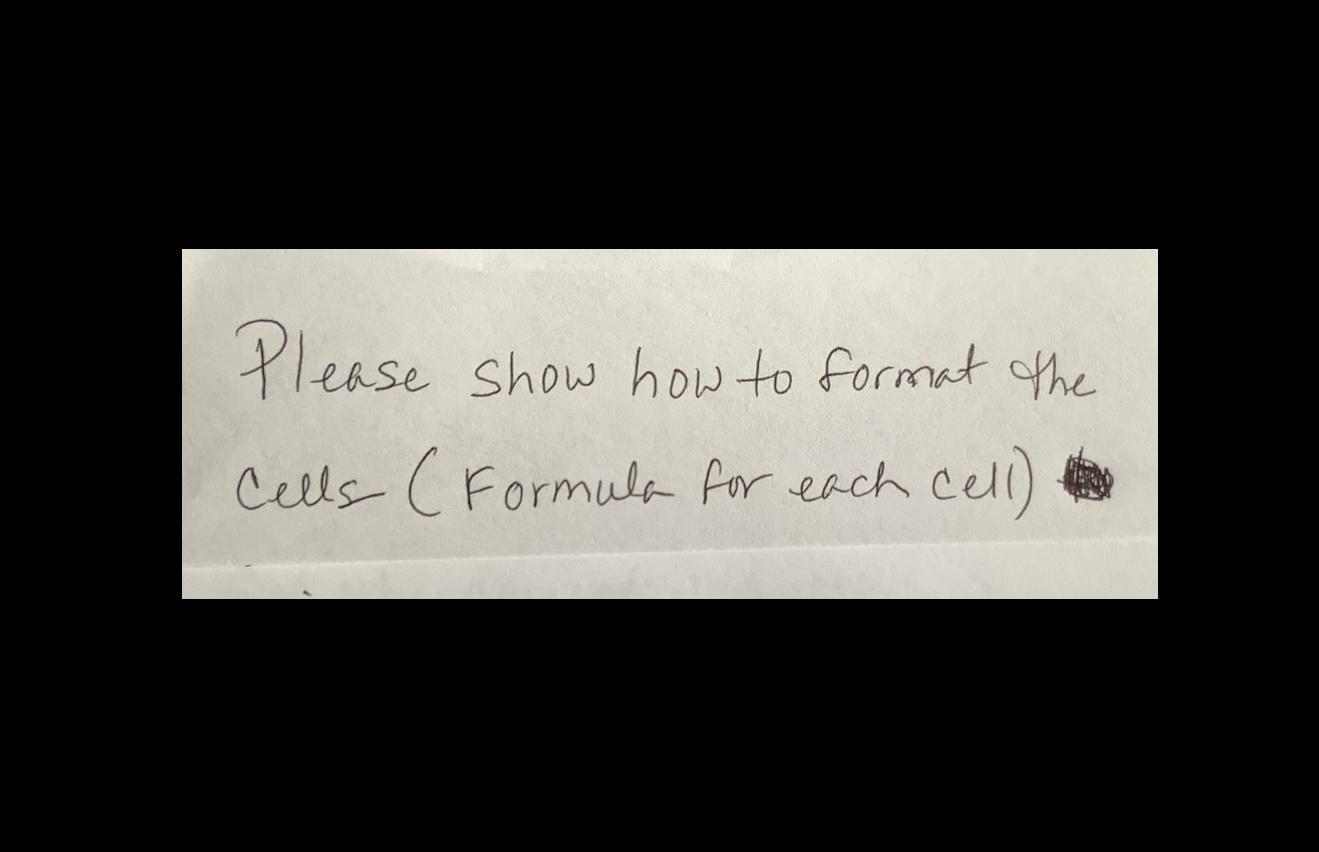 Please show how to format the
Cells (Formula for each cell)